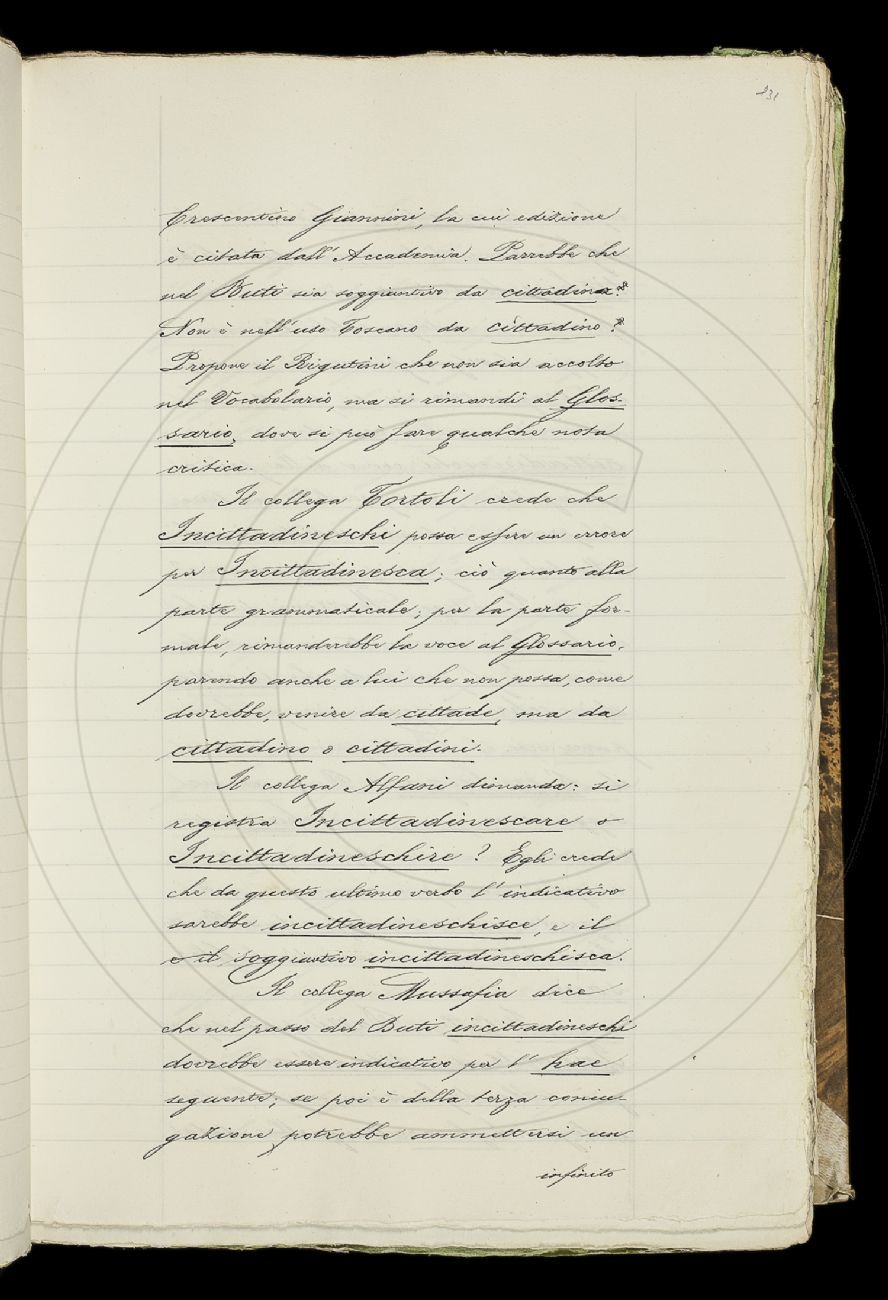 231
Crescentino Giannini, la cui edizione
è citata dall'Accademia. Parrebbe che
nel Buti sia soggiuntivo da cittadina?
Non è nell'uso Toscano da cittadino?
Propone il Rigutini che non sia accolto
nel Vocabolario, ma si rimandi al Glos-
sario, dove si può fare qualche nota
critica.
Il collega Tortoli crede che
Incittadineschi possa essere un errore
per Incittadinesca; ciò quanto alla
parte grammaticale; per la parte for-
male, rimanderebbe la voce al Glossario,
parendo anche a lui che non possa, come
dovrebbe, venire da cittade, ma da
cittadino o cittadini.
Il collega Alfani dimanda: si
registra Incittadinescare o
Incittadineschire? Egli crede
che da questo ultimo verbo l'indicativo
sarebbe incittadineschisce, e il
e il soggiuntivo incittadineschisca.
Il collega Mussafia dice
che nel passo del Buti incittadineschi
dovrebbe essere indicativo per l'hae
seguente; se poi è della terza coniu-
gazione potrebbe ammettersi un
infinito